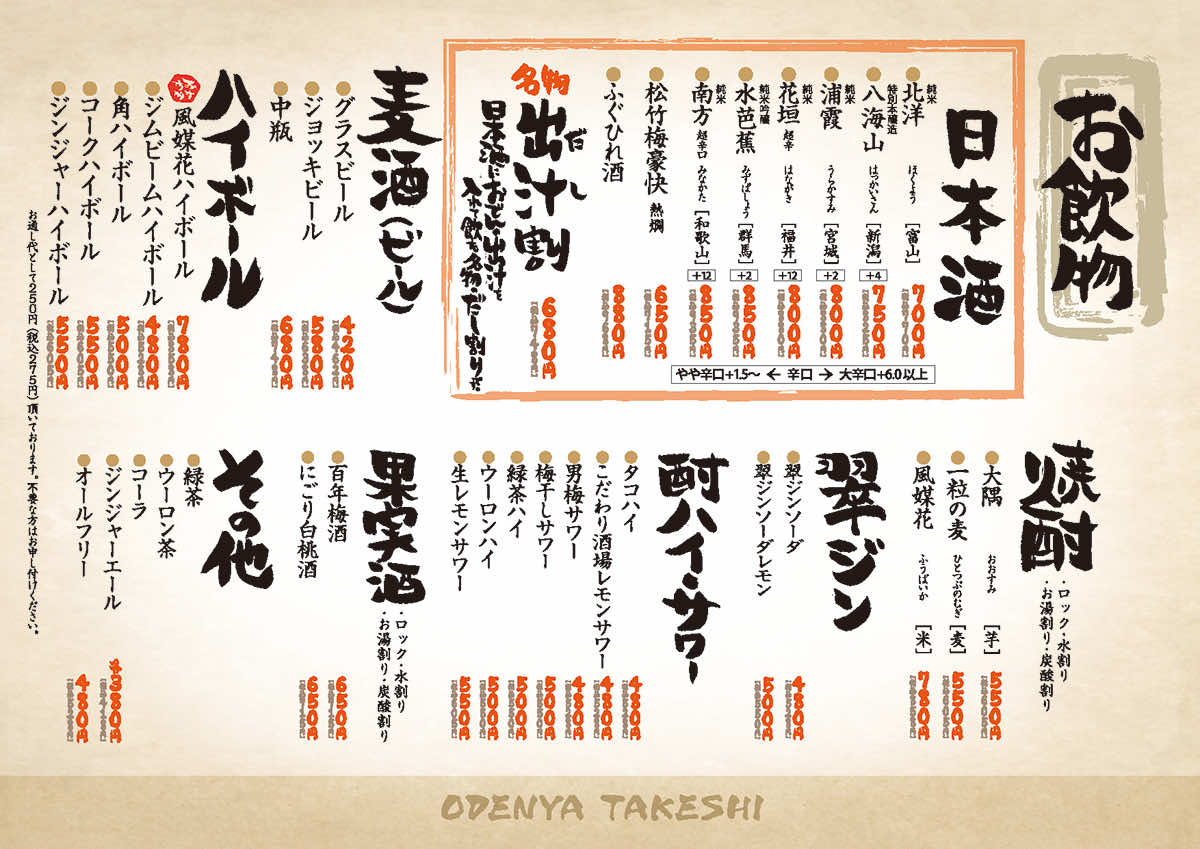 お飲物
日本酒
純米
北洋 ほくよう [富山]
700円
特別本醸造
八海山 はっかいさん [新潟] +4
750円
純米
浦霞 うらかすみ [宮城] +2
800円
純米
花垣 超辛 はながき [福井] +12
800円
純米吟醸
水芭蕉 みずばしょう [群馬] +2
850円
純米
南方 超辛口 みなかた [和歌山] +12
850円
松竹梅豪快 熱燗
650円
ふぐひれ酒
880円
やや辛口+1.5〜 ← 辛口 → 大辛口+6.0以上
名物
出汁割
だし
日本酒におでんの出汁を
入れて飲む名物・だし割りだ
680円
麦酒(ビール)
グラスビール
420円
ジョッキビール
580円
中瓶
680円
ハイボール
風媒花ハイボール
780円
ジムビームハイボール
480円
角ハイボール
500円
コークハイボール
550円
ジンジャーハイボール
550円
焼酎
・ロック・水割り
・お湯割り・炭酸割り
大隅 おおすみ [芋]
550円
一粒の麦 ひとつぶのむぎ [麦]
550円
風媒花 ふうばいか [米]
780円
翠ジン
翠ジンソーダ
480円
翠ジンソーダレモン
500円
酎ハイ・サワー
タコハイ
480円
こだわり酒場レモンサワー
480円
男梅サワー
480円
梅干しサワー
500円
緑茶ハイ
500円
ウーロンハイ
500円
生レモンサワー
550円
果実酒
・ロック・水割り
・お湯割り・炭酸割り
百年梅酒
650円
にごり白桃酒
650円
その他
緑茶
ウーロン茶
コーラ
ジンジャーエール
各380円
オールフリー
480円
お通し代として250円(税込275円)頂いております。不要な方はお申し付けください。
ODENYA TAKESHI